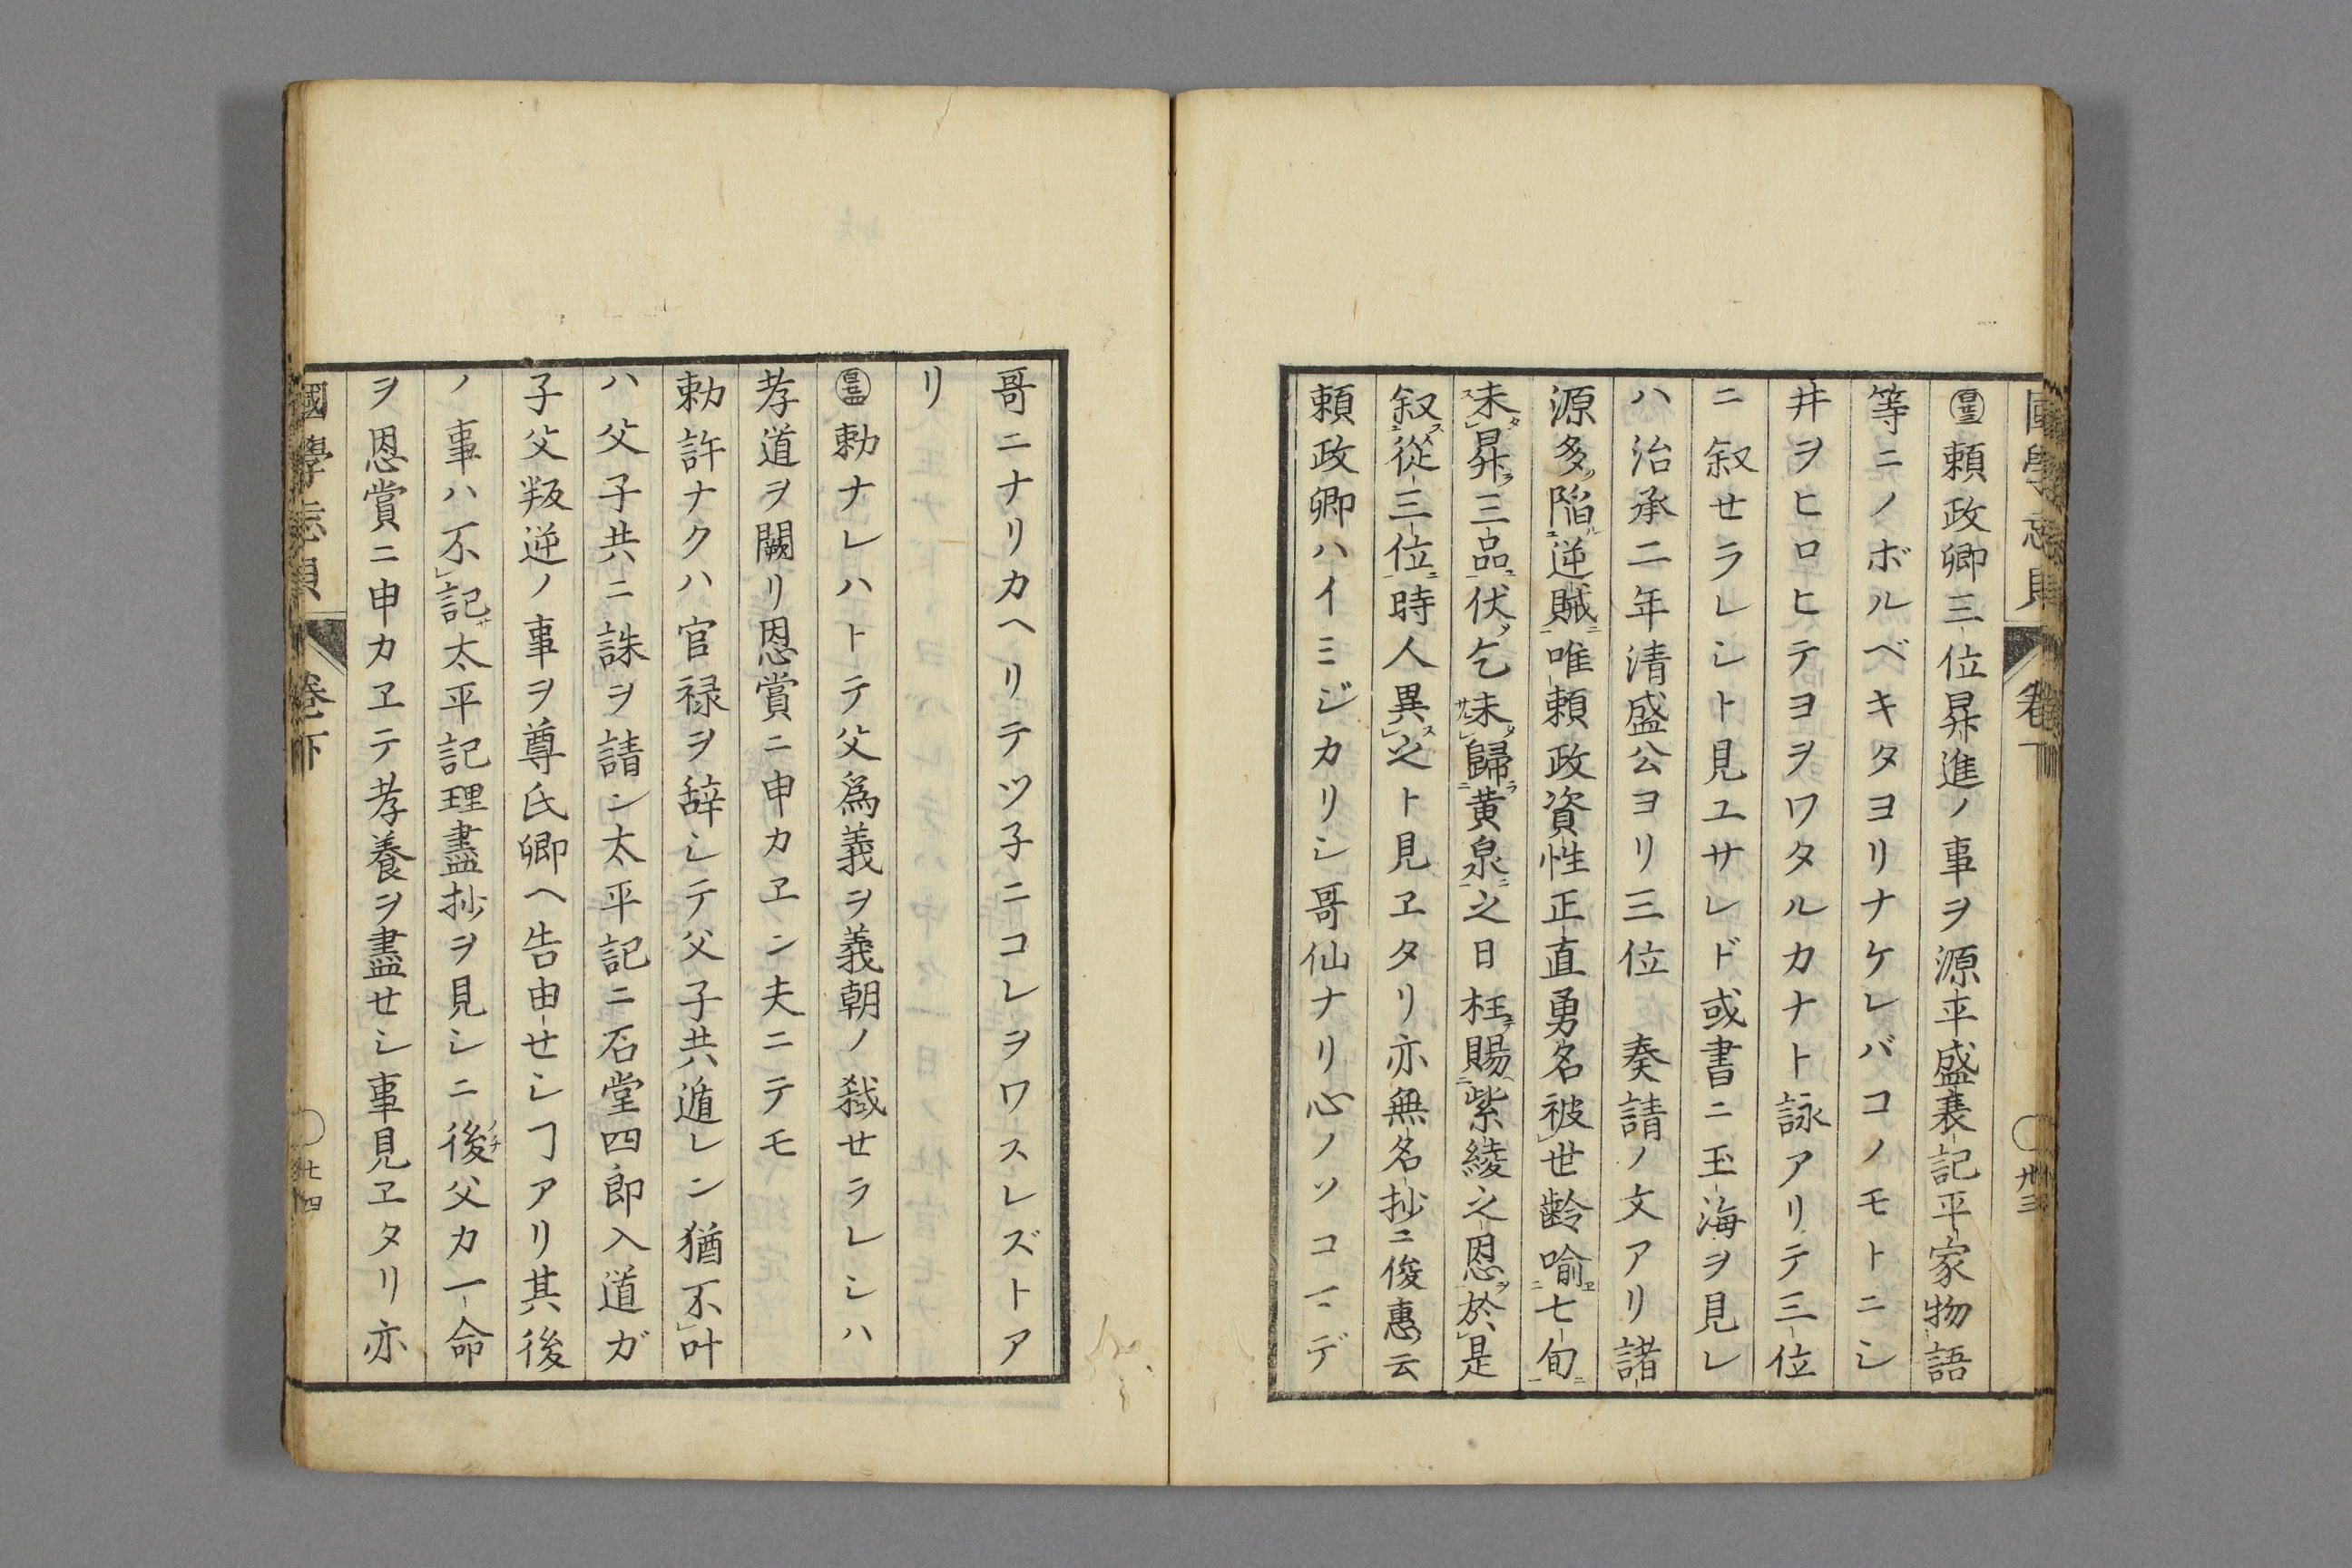 頼政卿三位昇進ノ事ヲ源平盛衰記平家物語
等ニノボルベキタヨリナケレバコノモトニシ
井ヲヒロヒテヨヲワタルカナト詠アリテ三位
ニ叙セラレシト見ユサレド或書ニ玉海ヲ見レ
ハ治承二年清盛公ヨリ三位 奏請ノ文アリ諸
源多陥逆賊唯頼政資性正直勇名被世齢喩七旬
未昇三品伏乞未歸黄泉之日枉賜紫綾之恩於是
叙從三位時人異之ト見ヱタリ亦無名抄ニ俊惠云
頼政卿ハイミジカリシ哥仙ナリ心ノソコマデ
哥ニナリカヘリテツ子ニコレヲワスレズトア
リ
勅ナレハトテ父爲義ヲ義朝ノ弑セラレシハ
孝道ヲ闕リ恩賞ニ申カヱン夫ニテモ
勅許ナクハ官禄ヲ辞シテ父子共遁レン猶不叶
ハ父子共ニ誅ヲ請ン太平記ニ石堂四郎入道ガ
子父叛逆ノ事ヲ尊氏卿ヘ告由セシヿアリ其後
ノ事ハ不記太平記理盡抄ヲ見シニ後父カ一命
ヲ恩賞ニ申カヱテ孝養ヲ盡セシ事見ヱタリ亦
國學忘貝 卷下 廿四